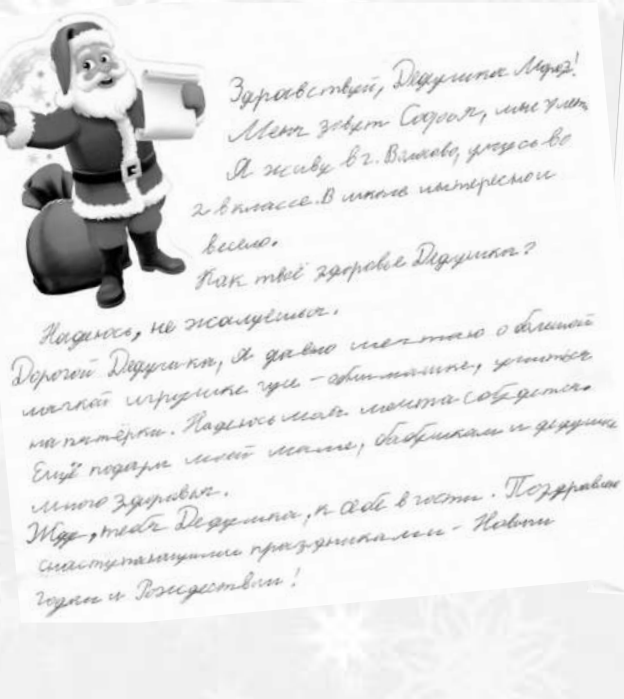 Здравствуй, Дедушка Мороз!
Меня зовут София, мне 7 лет,
Я живу в г. Волхово, учусь во
2 в классе. В школе интересно и
весело.
Как твоё здоровье Дедушка?
Надеюсь, не жалуешься.
Дорогой Дедушка, Я давно мечтаю о большой
мягкой игрушке гусе - обнимашке, учиться
на пятёрки. Надеюсь моя мечта сбудется.
Ещё подари моей маме, бабушкам и дедушке
много здоровья.
Жду, тебя Дедушка, к себе в гости. Поздравляю
с наступающими праздниками - Новым
годом и Рождеством!